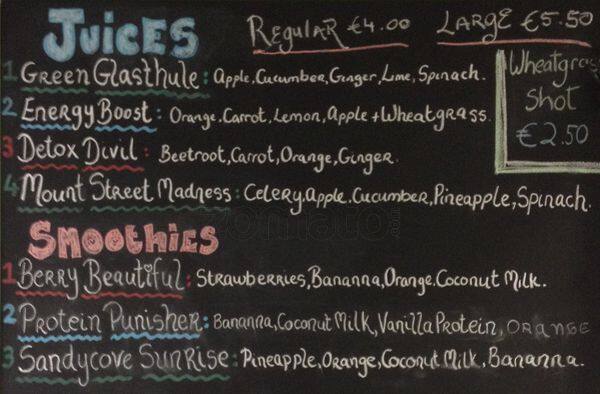 Juices Regular €4.00 Large €5.50
1 Green Glasthule: Apple, Cucumber, Ginger, Lime, Spinach.
2 Energy Boost: Orange, Carrot, Lemon, Apple + Wheatgrass.
3 Detox Divil: Beetroot, Carrot, Orange, Ginger.
4 Mount Street Madness: Celery, Apple, Cucumber, Pineapple, Spinach.
Wheatgrass
Shot
€2.50
Smoothies
1 Berry Beautiful: Strawberries, Bananna, Orange, Coconut Milk.
2 Protein Punisher: Bananna, Coconut Milk, Vanilla Protein, ORANGE
3 Sandycove Sunrise: Pineapple, Orange, Coconut Milk, Bananna.
zomato.com